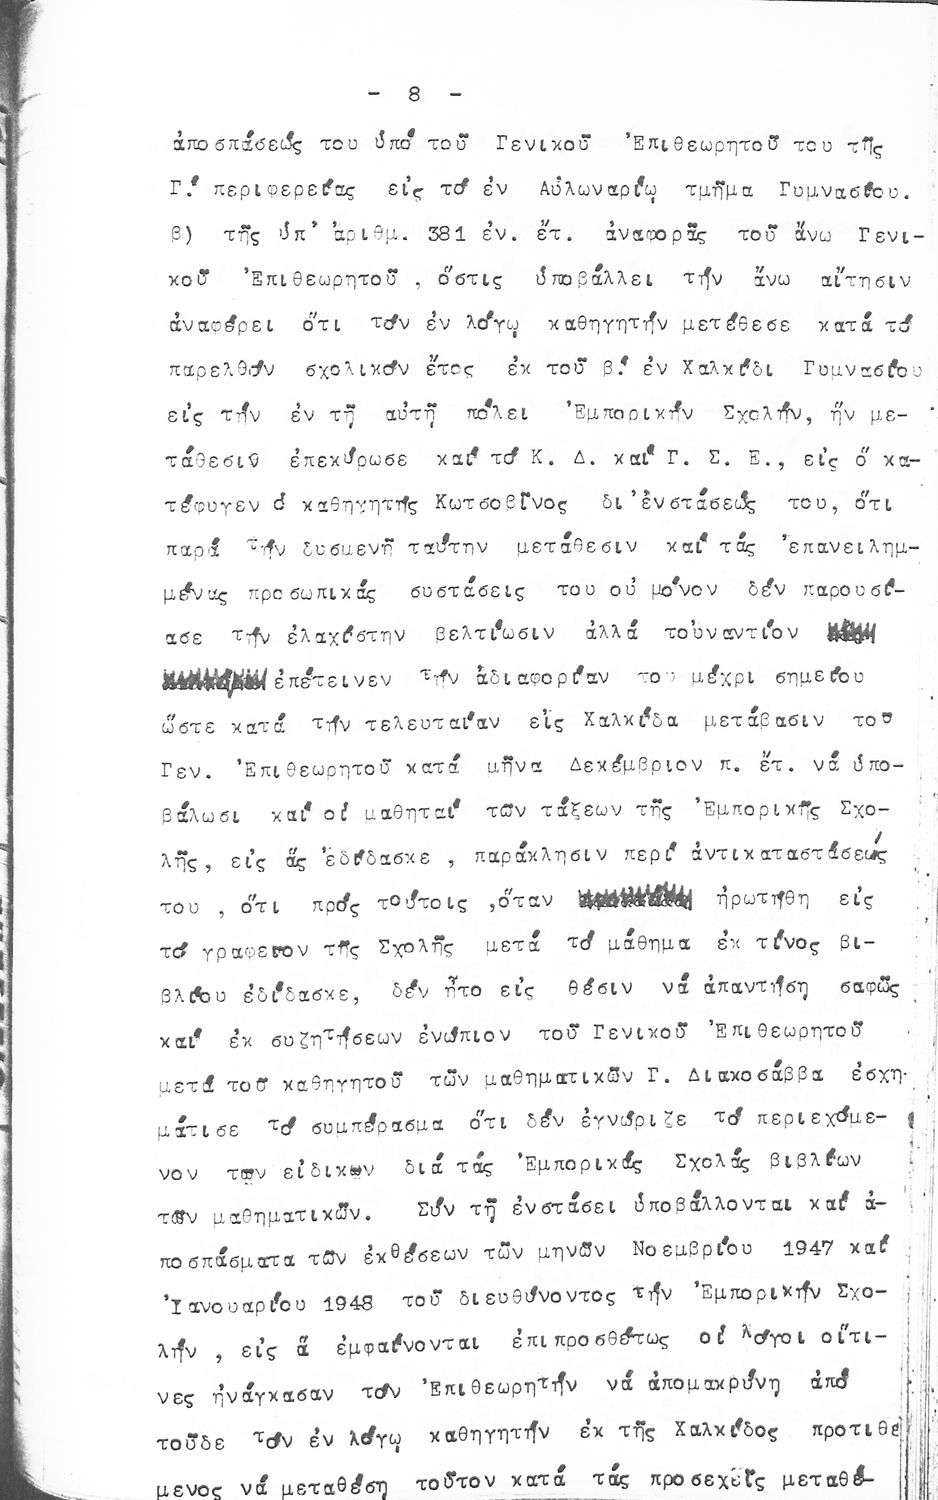 - 8 -
ἀποσπάσεώς του ὑπό τοῦ Γενικοῦ Ἐπιθεωρητοῦ του τῆς
Γ.' περιφερείας εἰς τό ἐν Αὐλωναρίῳ τμῆμα Γυμνασίου.
β) τῆς ὑπ' ἀριθμ. 381 ἐν. ἔτ. ἀναφορᾶς τοῦ ἄνω Γενι-
κοῦ Ἐπιθεωρητοῦ , ὅστις ὑποβάλλει τήν ἄνω αἴτησιν
ἀναφέρει ὅτι τόν ἐν λόγῳ καθηγητήν μετέθεσε κατά τό
παρελθόν σχολικόν ἔτος ἐκ τοῦ β.' ἐν Χαλκίδι Γυμνασίου
εἰς τήν ἐν τῇ αὐτῇ πόλει Ἐμπορικήν Σχολήν, ἥν με-
τάθεσιν ἐπεκύρωσε καί τό Κ. Δ. καί Γ. Σ. Ε., εἰς ὅ κα-
τέφυγεν ὁ καθηγητής Κωτσοβῖνος δι'ἐνστάσεώς του, ὅτι
παρά τήν δυσμενῆ ταύτην μετάθεσιν καί τάς ἐπανειλημ-
μένας προσωπικάς συστάσεις του οὐ μόνον δέν παρουσί-
ασε τήν ἐλαχίστην βελτίωσιν ἀλλά τοὐναντίον
ἐπέτεινεν τήν ἀδιαφορίαν του μέχρι σημείου
ὥστε κατά τήν τελευταίαν εἰς Χαλκίδα μετάβασιν τοῦ
Γεν. Ἐπιθεωρητοῦ κατά μῆνα Δεκέμβριον π. ἔτ. νά ὑπο-
βάλωσι καί οἱ μαθηταί τῶν τάξεων τῆς Ἐμπορικῆς Σχο-
λῆς, εἰς ἅς ἐδίδασκε , παράκλησιν περί ἀντικαταστάσεώς
του , ὅτι πρός τούτοις ,ὅταν ἠρωτήθη εἰς
τό γραφεῖον τῆς Σχολῆς μετά τό μάθημα ἐκ τίνος βι-
βλίου ἐδίδασκε, δέν ἦτο εἰς θέσιν νά ἀπαντήσῃ σαφῶς
καί ἐκ συζητήσεων ἐνώπιον τοῦ Γενικοῦ Ἐπιθεωρητοῦ
μετά τοῦ καθηγητοῦ τῶν μαθηματικῶν Γ. Διακοσάββα ἐσχη-
μάτισε τό συμπέρασμα ὅτι δέν ἐγνώριζε τό περιεχόμε-
νον τῶν εἰδικῶν διά τάς Ἐμπορικάς Σχολάς βιβλίων
τῶν μαθηματικῶν. Σύν τῇ ἐνστάσει ὑποβάλλονται καί ἀ-
ποσπάσματα τῶν ἐκθέσεων τῶν μηνῶν Νοεμβρίου 1947 καί
Ἰανουαρίου 1948 τοῦ διευθύνοντος τήν Ἐμπορικήν Σχο-
λήν , εἰς ἅ ἐμφαίνονται ἐπιπροσθέτως οἱ λόγοι οἵτι-
νες ἠνάγκασαν τόν Ἐπιθεωρητήν νά ἀπομακρύνῃ ἀπό
τοῦδε τόν ἐν λόγῳ καθηγητήν ἐκ τῆς Χαλκίδος προτιθέ
μενος νά μεταθέσῃ τοῦτον κατά τάς προσεχεῖς μεταθέ-